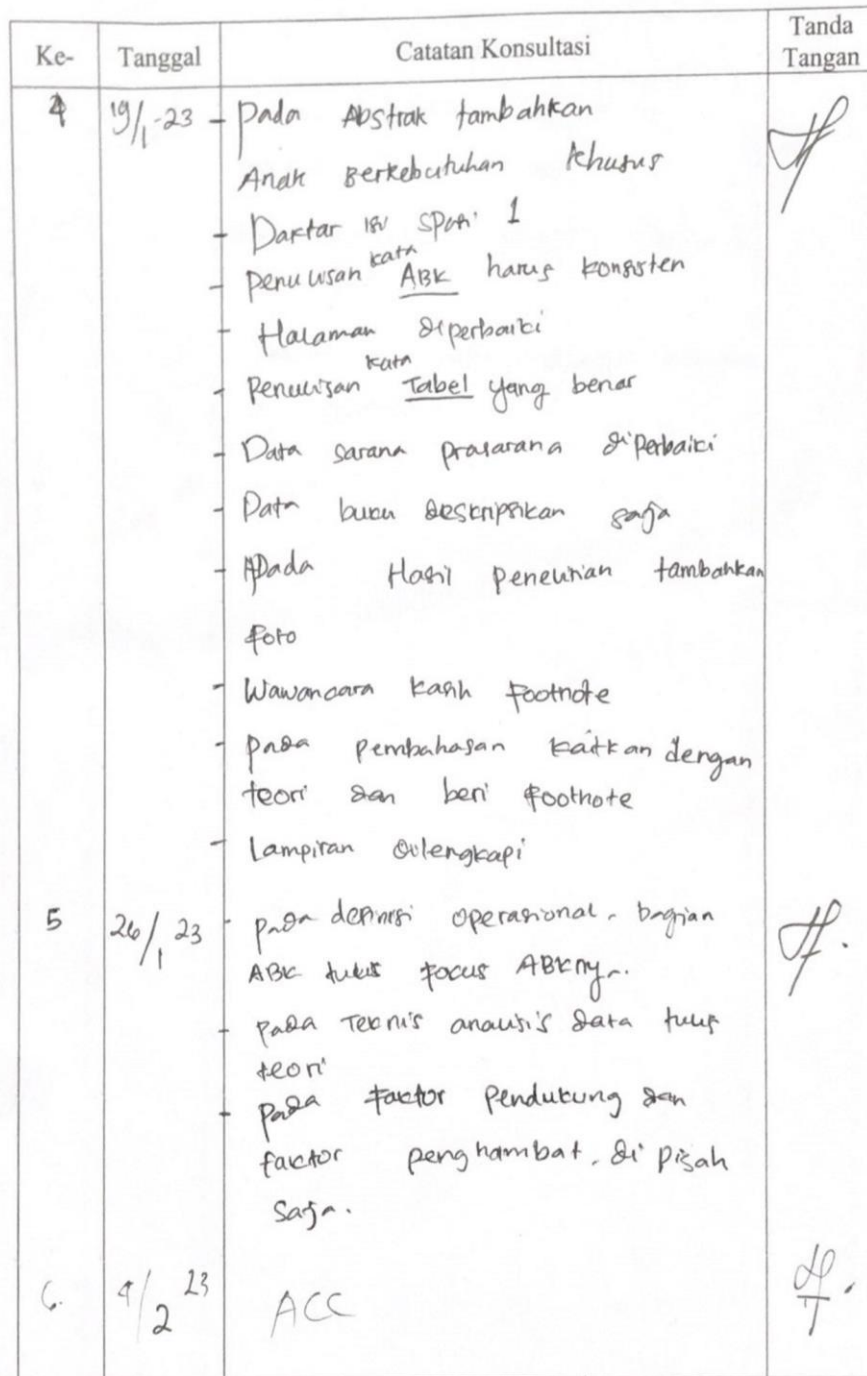 Ke- Tanggal Catatan Konsultasi Tanda Tangan
4 19/1-23 - Pada Abstrak tambahkan
Anak Berkebutuhan Khusus
- Daftar isi spasi 1
- Penulisan kata ABK harus konsisten
- Halaman diperbaiki
- Penulisan kata Tabel yang benar
- Data sarana prasarana diperbaiki
- Data buku deskripsikan saja
- Pada Hasil penelitian tambahkan
foto
- Wawancara kasih footnote
- pada pembahasan kaitkan dengan
teori dan beri footnote
- Lampiran dilengkapi
5 26/1 23 - pada definisi operasional, bagian
ABK tulis focus ABKny
- pada Teknis analisis data tulis
teori
- pada faktor pendukung dan
faktor penghambat, di pisah
saja.
6. 4/2 23 ACC